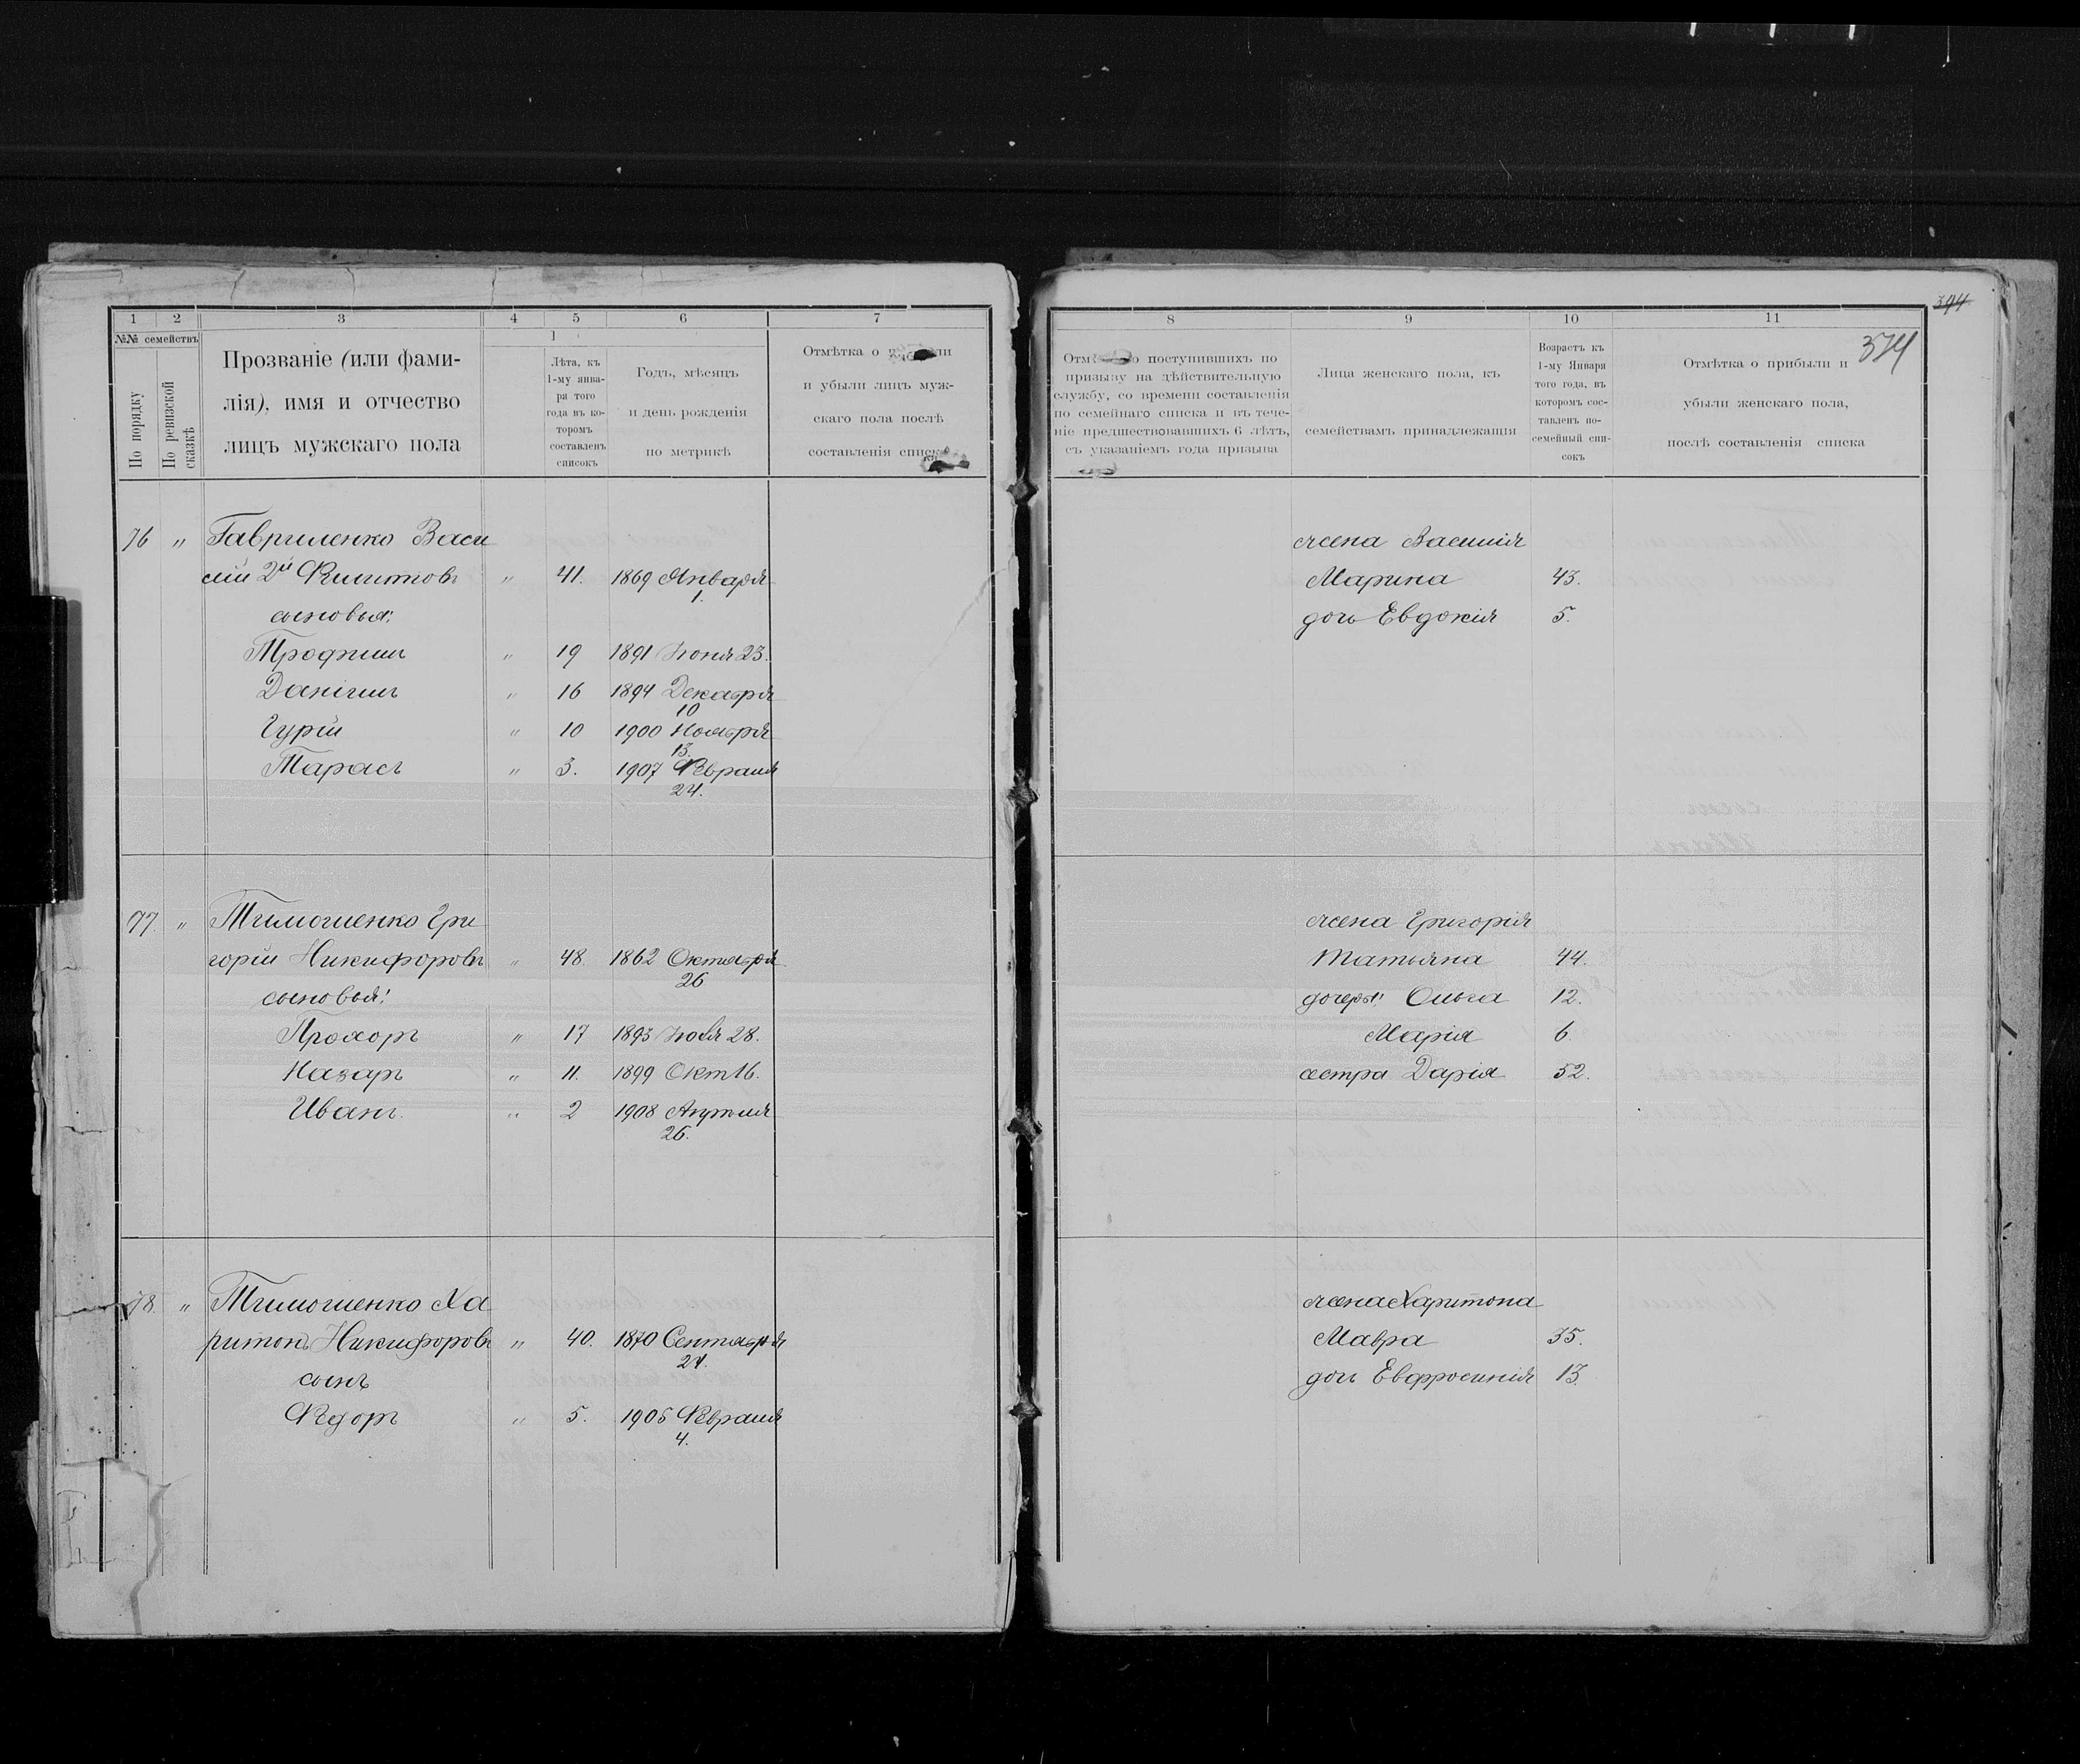 394
374
1 2 3 4 5 6 7
№№ семействъ
По порядку
По ревизской сказкѣ
Прозваніе (или фами-
лія), имя и отчество
лицъ мужскаго пола
1
Лѣта, къ
1-му янва-
ря того
года въ ко-
торомъ
составленъ
списокъ
Годъ, мѣсяцъ
и день рожденія
по метрикѣ
Отмѣтка о
и убыли лицъ муж-
скаго пола послѣ
составленія списка
76 „ Гавриленко Васи
лій 2й Филиповъ „ 41. 1869 Января
1.
сыновья:
Трофимъ „ 19 1891 Іюня 23.
Даніилъ „ 16 1894 Декабря
10
Гурій „ 10 1900 Ноября
13.
Тарасъ „ 3. 1907 Февраля
24.
77. „ Тимошенко Гри
горій Никифоровъ „ 48. 1862 Октября
26
сыновья:
Прохоръ „ 17 1893 Іюля 28.
Назаръ „ 11. 1899 Окт 16.
Иванъ. „ 2 1908 Апреля
26.
78. „ Тимошенко Ха
ритонъ Никифоровъ „ 40. 1870 Сентября
24.
сынъ
Фѣдоръ „ 5. 1905 Февраля
4.
8 9 10 11
о поступившихъ по
призыву на дѣйствительную
службу, со времени составленія
по семейнаго списка и въ тече-
ніе предшествовавшихъ 6 лѣтъ,
съ указаніемъ года призыва
Лица женскаго пола, къ
семействамъ принадлежащія
Возрастъ къ
1-му Января
того года, въ
которомъ сос-
тавленъ по-
семейный спи-
сокъ
Отмѣтка о прибыли и
убыли женскаго пола,
послѣ составленія списка
жена Василія
Марина 43.
дочь Евдокія 5.
жена Григорія
Татьяна 44.
дочери: Ольга 12.
Марія 6.
сестра Дарія 52.
жена Харитона
Мавра 35.
дочь Евфросинія 13.